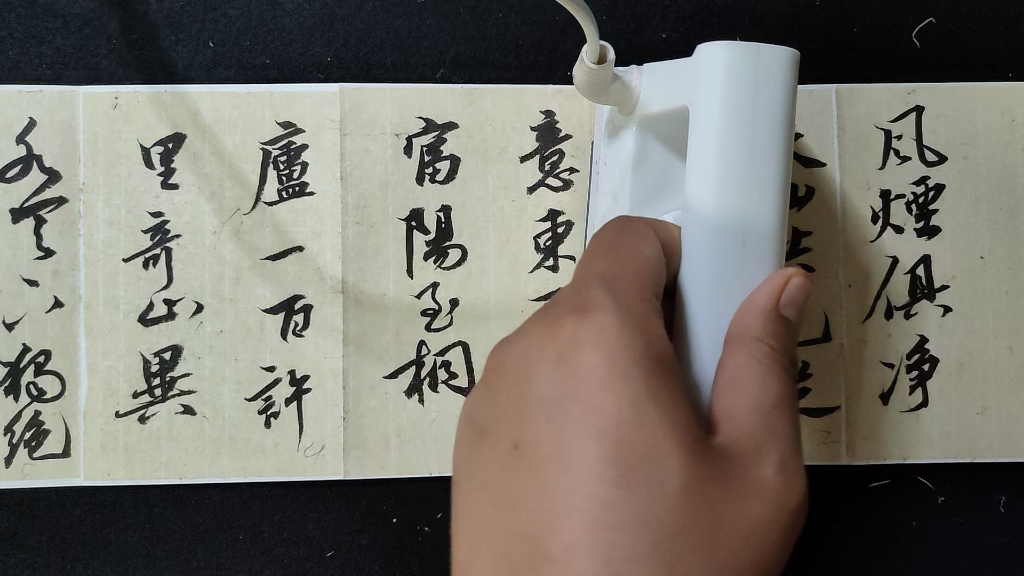 風煙俱净
意東
富陽至桐
廬一百許
里奇山異
水天下獨絕